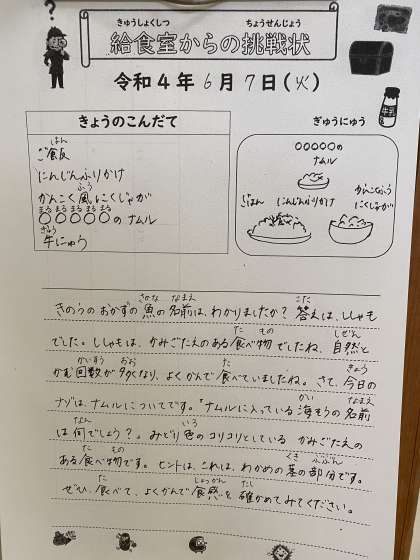 きゅうしょくしつ ちょうせんじょう
給食室からの挑戦状
令和4年6月7日(火)
きょうのこんだて
ご飯
はん
にんじんふりかけ
かんこく風にくじゃが
ふう
○○○○○のナムル
まる まる まる まる まる
牛にゅう
ぎゅう
ぎゅうにゅう
牛乳
○○○○○の
ナムル
ごはん
にんじんふりかけ
かんこくふう
にくじゃが
さかな なまえ こた
きのうのおかずの魚の名前は、わかりましたか?答えは、ししゃも
た もの しぜん
でした。ししゃもは、かみごたえのある食べ物でしたね、自然と
かいすう おお た きょう
かむ回数が多くなり、よくかんで食べていましたね。さて、今日の
かい なまえ
ナゾは、ナムルについてです。「ナムルに入っている海そうの名前
なん いろ
は何でしょう?」みどり色のコリコリとしている かみごたえの
た もの くき ぶぶん
ある食べ物です。ヒントは、これは、わかめの茎の部分です。
た しょっかん たし
ぜひ、食べて、よくかんで食感を確かめてみてください。